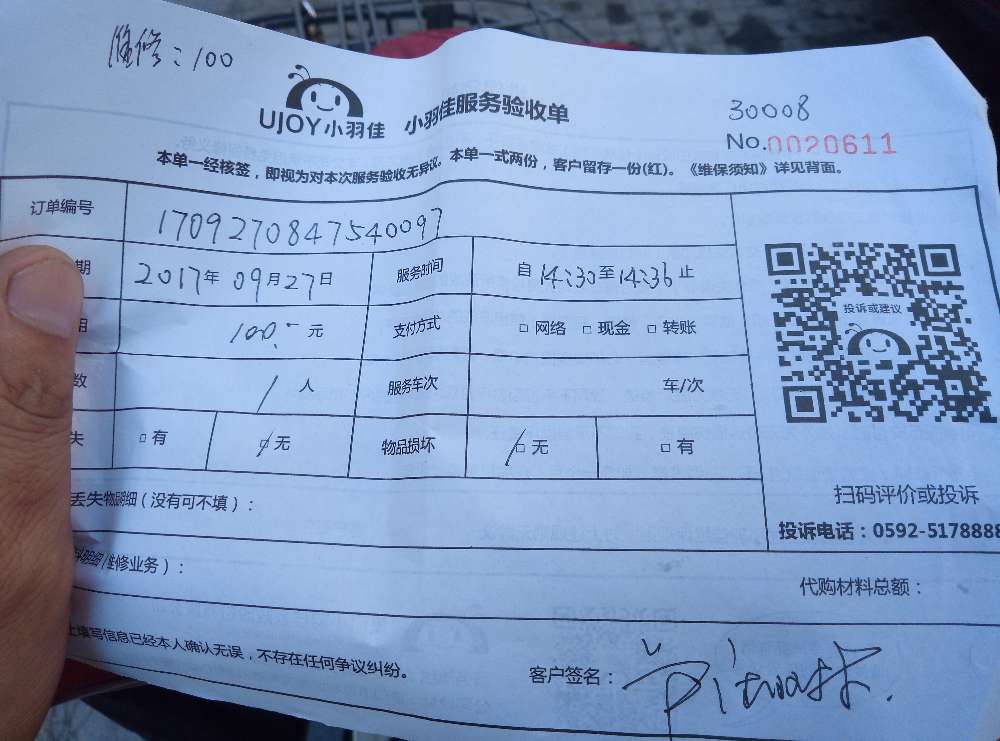 维修：100
UJOY小羽佳 小羽佳服务验收单
30008
No.0020611
本单一经核签，即视为对本次服务验收无异议。本单一式两份，客户留存一份(红)。《维保须知》详见背面。
订单编号 1709270847540097
期 2017年 09月27日 服务时间 自14:30至14:36止
100.- 元 支付方式 □ 网络 □ 现金 □ 转账
数 1 人 服务车次 车/次
失 □ 有 □ 无 物品损坏 □ 无 □ 有
投诉或建议
扫码评价或投诉
投诉电话：0592-5178888
丢失物品明细（没有可不填）：
明细（维修业务）：
代购材料总额：
上填写信息已经本人确认无误，不存在任何争议纠纷。
客户签名：